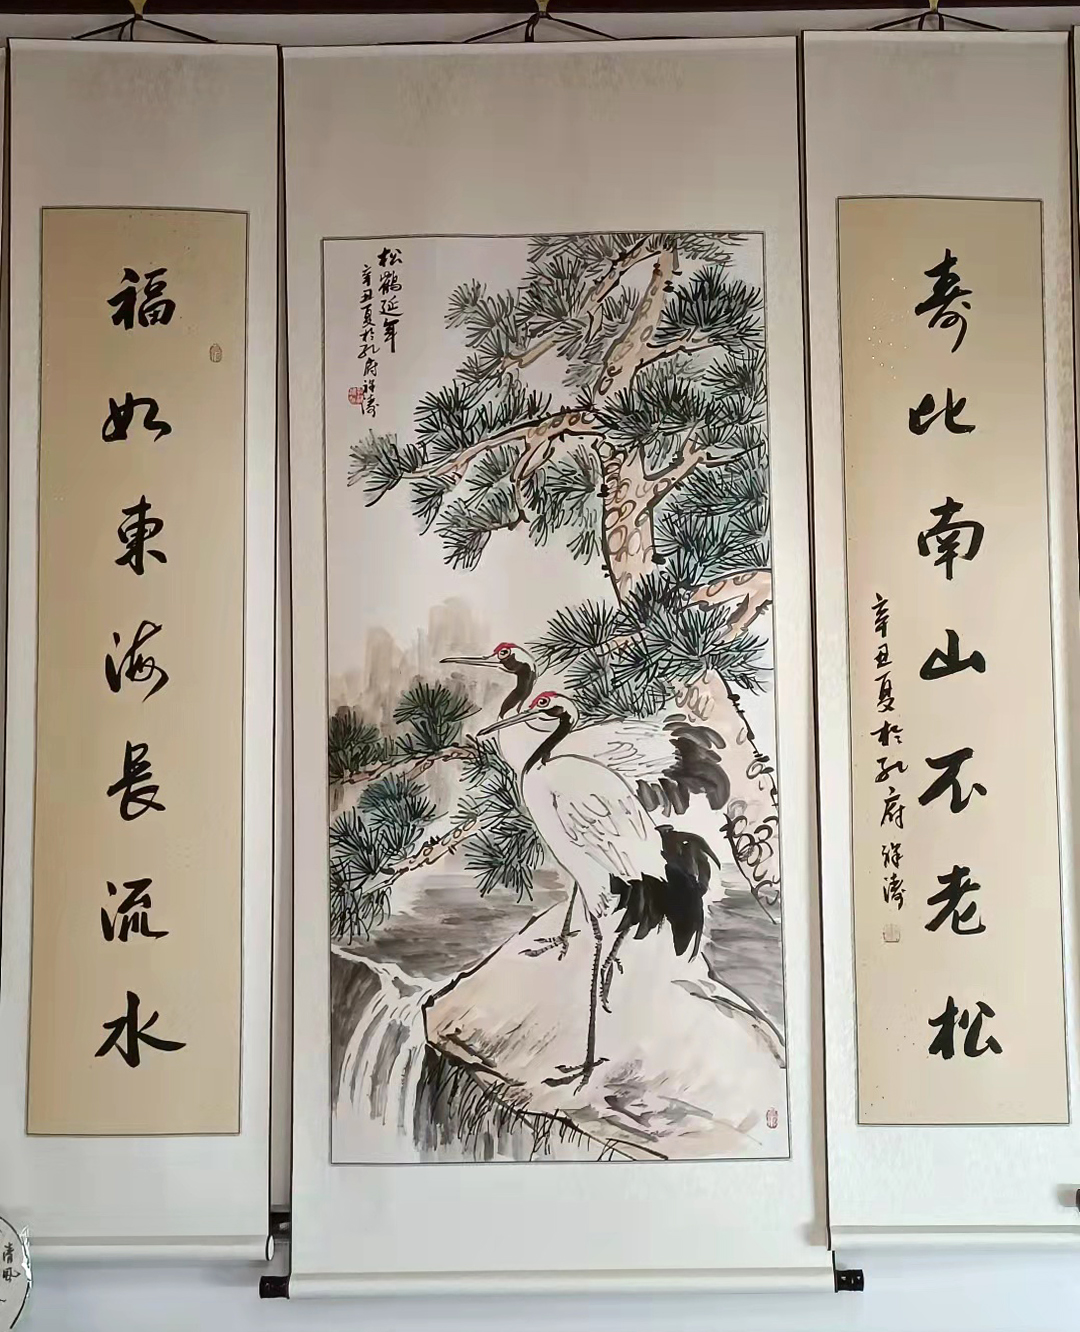 福如東海長流水
松鶴延年
辛丑夏於孔府祥濤
寿比南山不老松
辛丑夏於孔府祥濤
清風